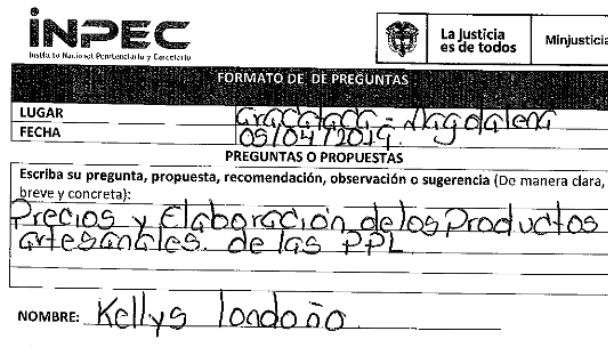 INPEC
Instituto Nacional Penitenciario y Carcelario
La justicia
es de todos
Minjusticia
FORMATO DE DE PREGUNTAS
LUGAR Aracataca - Magdalena
FECHA 05/04/2019.
PREGUNTAS O PROPUESTAS
Escriba su pregunta, propuesta, recomendación, observación o sugerencia (De manera clara,
breve y concreta):
Precios y Elaboración de los Productos
artesanales. de las PPL
NOMBRE: Kellys londoño